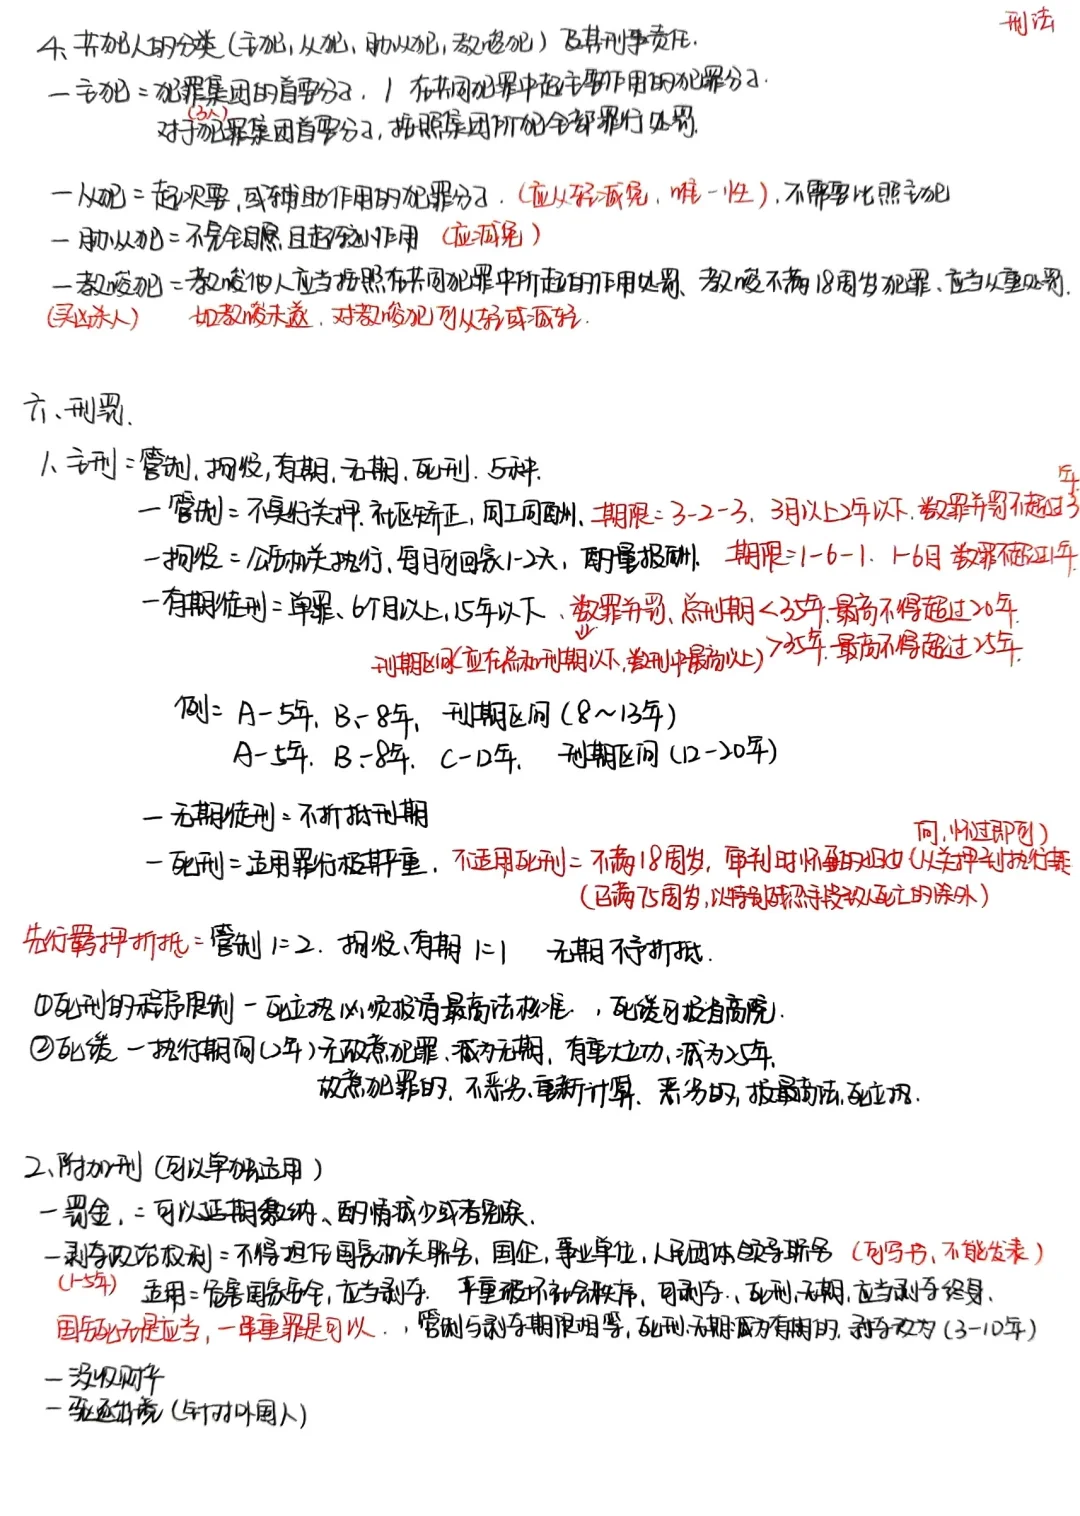 刑法
4、共犯人的分类(主犯,从犯,胁从犯,教唆犯)及其刑事责任.
一主犯=犯罪集团的首要分子. 1 在共同犯罪中起主要作用的犯罪分子.
(3人)
对于犯罪集团首要分子,按照集团所犯全部罪行处罚.
一从犯=起次要,或辅助作用的犯罪分子.(应从轻减免.唯一性),不需要比照主犯
一胁从犯=不完全自愿且起较小作用 (应减免)
一教唆犯=教唆他人应当按照在共同犯罪中所起的作用处罚、教唆不满18周岁犯罪、应当从重处罚.
(买凶杀人) 如教唆未遂.对教唆犯可从轻或减轻.
六、刑罚.
1、主刑=管制.拘役,有期.无期.死刑.5种.
一管制=不具行关押.社区矫正,同工同酬.期限=3-2-3. 3月以上2年以下.数罪并罚不超过3年
一拘役=公安机关执行,每月可回家1-2天,酌量报酬. 期限=1-6-1. 1-6月 数罪不超过1年.
一有期徒刑=单罪、6个月以上,15年以下、数罪并罚、总刑期<35年.最高不得超过20年.
刑期区间(应在总和刑期以下,数刑中最高以上) >35年.最高不得超过25年.
例= A-5年. B-8年, 刑期区间(8~13年)
A-5年. B-8年. C-12年. 刑期区间(12-20年)
一无期徒刑=不折抵刑期
一死刑=适用罪行极其严重.不适用死刑=不满18周岁,审判时怀孕的妇女(从关押到执行期
间,怀过即可)
(已满75周岁,以特别残忍手段致人死亡的除外)
先行羁押折抵=管制1=2. 拘役、有期1=1 无期不予折抵.
①死刑的程序限制一死立执必须报请最高法核准.,死缓可报省高院.
②死缓一执行期间(2年)无故意犯罪、减为无期,有重大立功,减为25年.
故意犯罪的.不恶劣、重新计算. 恶劣的,报最高法,死立执.
2、附加刑(可以单独适用)
一罚金.=可以延期缴纳、酌情减少或者免除.
一剥夺政治权利=不得担任国家机关职务,国企,事业单位,人民团体领导职务(可写书,不能发表)
(1-5年) 适用=危害国家安全,应当剥夺. 严重破坏社会秩序.可剥夺.,死刑,无期,应当剥夺终身.
国安死无是应当,一车重罪是可以.,管制与剥夺期限相等,死刑.无期减为有期的,剥夺改为(3-10年)
一没收财产
一驱逐出境(针对外国人)